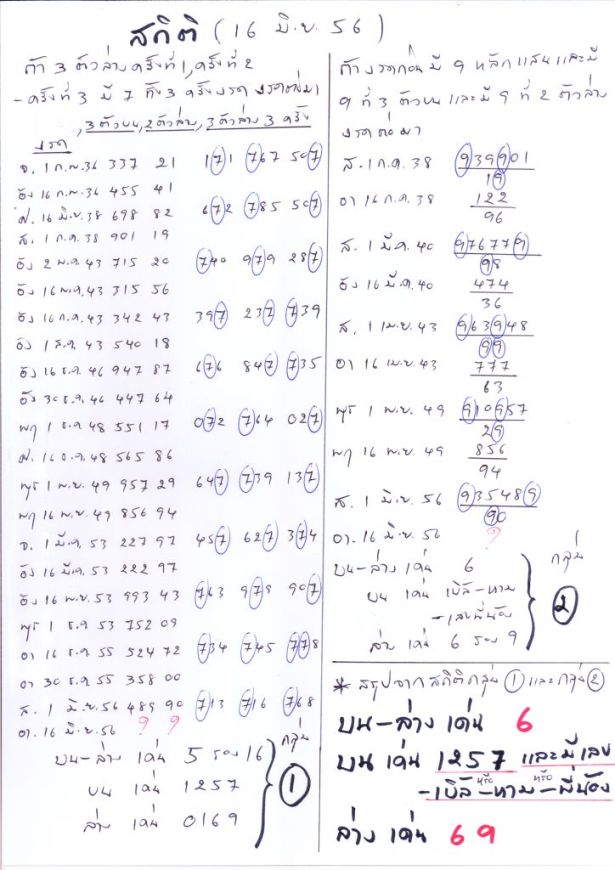 สถิติ (16 มิ.ย. 56)
ถ้า 3 ตัวล่างครั้งที่ 1, ครั้งที่ 2
- ครั้งที่ 3 มี 7 ทั้ง 3 ครั้งงวด งวดต่อมา
3 ตัวบน, 2 ตัวล่าง, 3 ตัวล่าง 3 ครั้ง
งวด
จ. 1 ก.พ. 36 337 21 171 767 507
อัง 16 ก.พ. 36 455 41
ศ. 16 มิ.ย. 38 698 82 672 785 507
ส. 1 ก.ค. 38 901 19
อัง 2 พ.ค. 43 715 20 740 979 287
อัง 16 พ.ค. 43 315 56
อัง 16 ก.ค. 43 342 43 397 237 739
อัง 1 ส.ค. 43 540 18
อัง 16 ธ.ค. 46 947 87 676 847 735
อัง 30 ธ.ค. 46 447 64
พฤ 1 ธ.ค. 48 551 17 072 764 027
ศ. 16 ธ.ค. 48 565 86
พุธ 1 พ.ย. 49 957 29 647 739 137
พฤ 16 พ.ย. 49 856 94
จ. 1 มี.ค. 53 227 97 457 627 374
อัง 16 มี.ค. 53 222 97
อัง 16 พ.ย. 53 993 43 763 979 907
พุธ 1 ธ.ค 53 752 09
อา 16 ธ.ค 55 524 72 734 745 778
อา 30 ธ.ค 55 358 00
ส. 1 มิ.ย. 56 489 90 713 716 768
อา. 16 มิ.ย. 56 ? ?
บน-ล่าง เด่น 5 รอง 16
บน เด่น 1257
ล่าง เด่น 0169
กลุ่ม
1
ถ้างวดก่อนมี 9 หลักแสนและมี
9 ที่ 3 ตัวบน และมี 9 ที่ 2 ตัวล่าง
งวดต่อมา
ส. 1 ก.ค. 38 939901
19
อา 16 ก.ค. 38 122
96
ส. 1 มี.ค. 40 976779
98
อัง 16 มี.ค. 40 474
36
ส. 1 เม.ย. 43 963948
99
อา 16 เม.ย. 43 777
63
พุธ 1 พ.ย. 49 910957
29
พฤ 16 พ.ย. 49 856
94
ส. 1 มิ.ย. 56 935489
90
อา. 16 มิ.ย. 56 ?
บน-ล่าง เด่น 6
บน เด่น เบิ้ล-หาม
-เลขพี่น้อง
ล่าง เด่น 6 รอง 9
กลุ่ม
2
* สรุปจากสถิติกลุ่ม 1 และกลุ่ม 2
บน-ล่าง เด่น 6
บน เด่น 1257 และมีเลข
-เบิ้ล หรือ -หาม หรือ -พี่น้อง
ล่าง เด่น 69